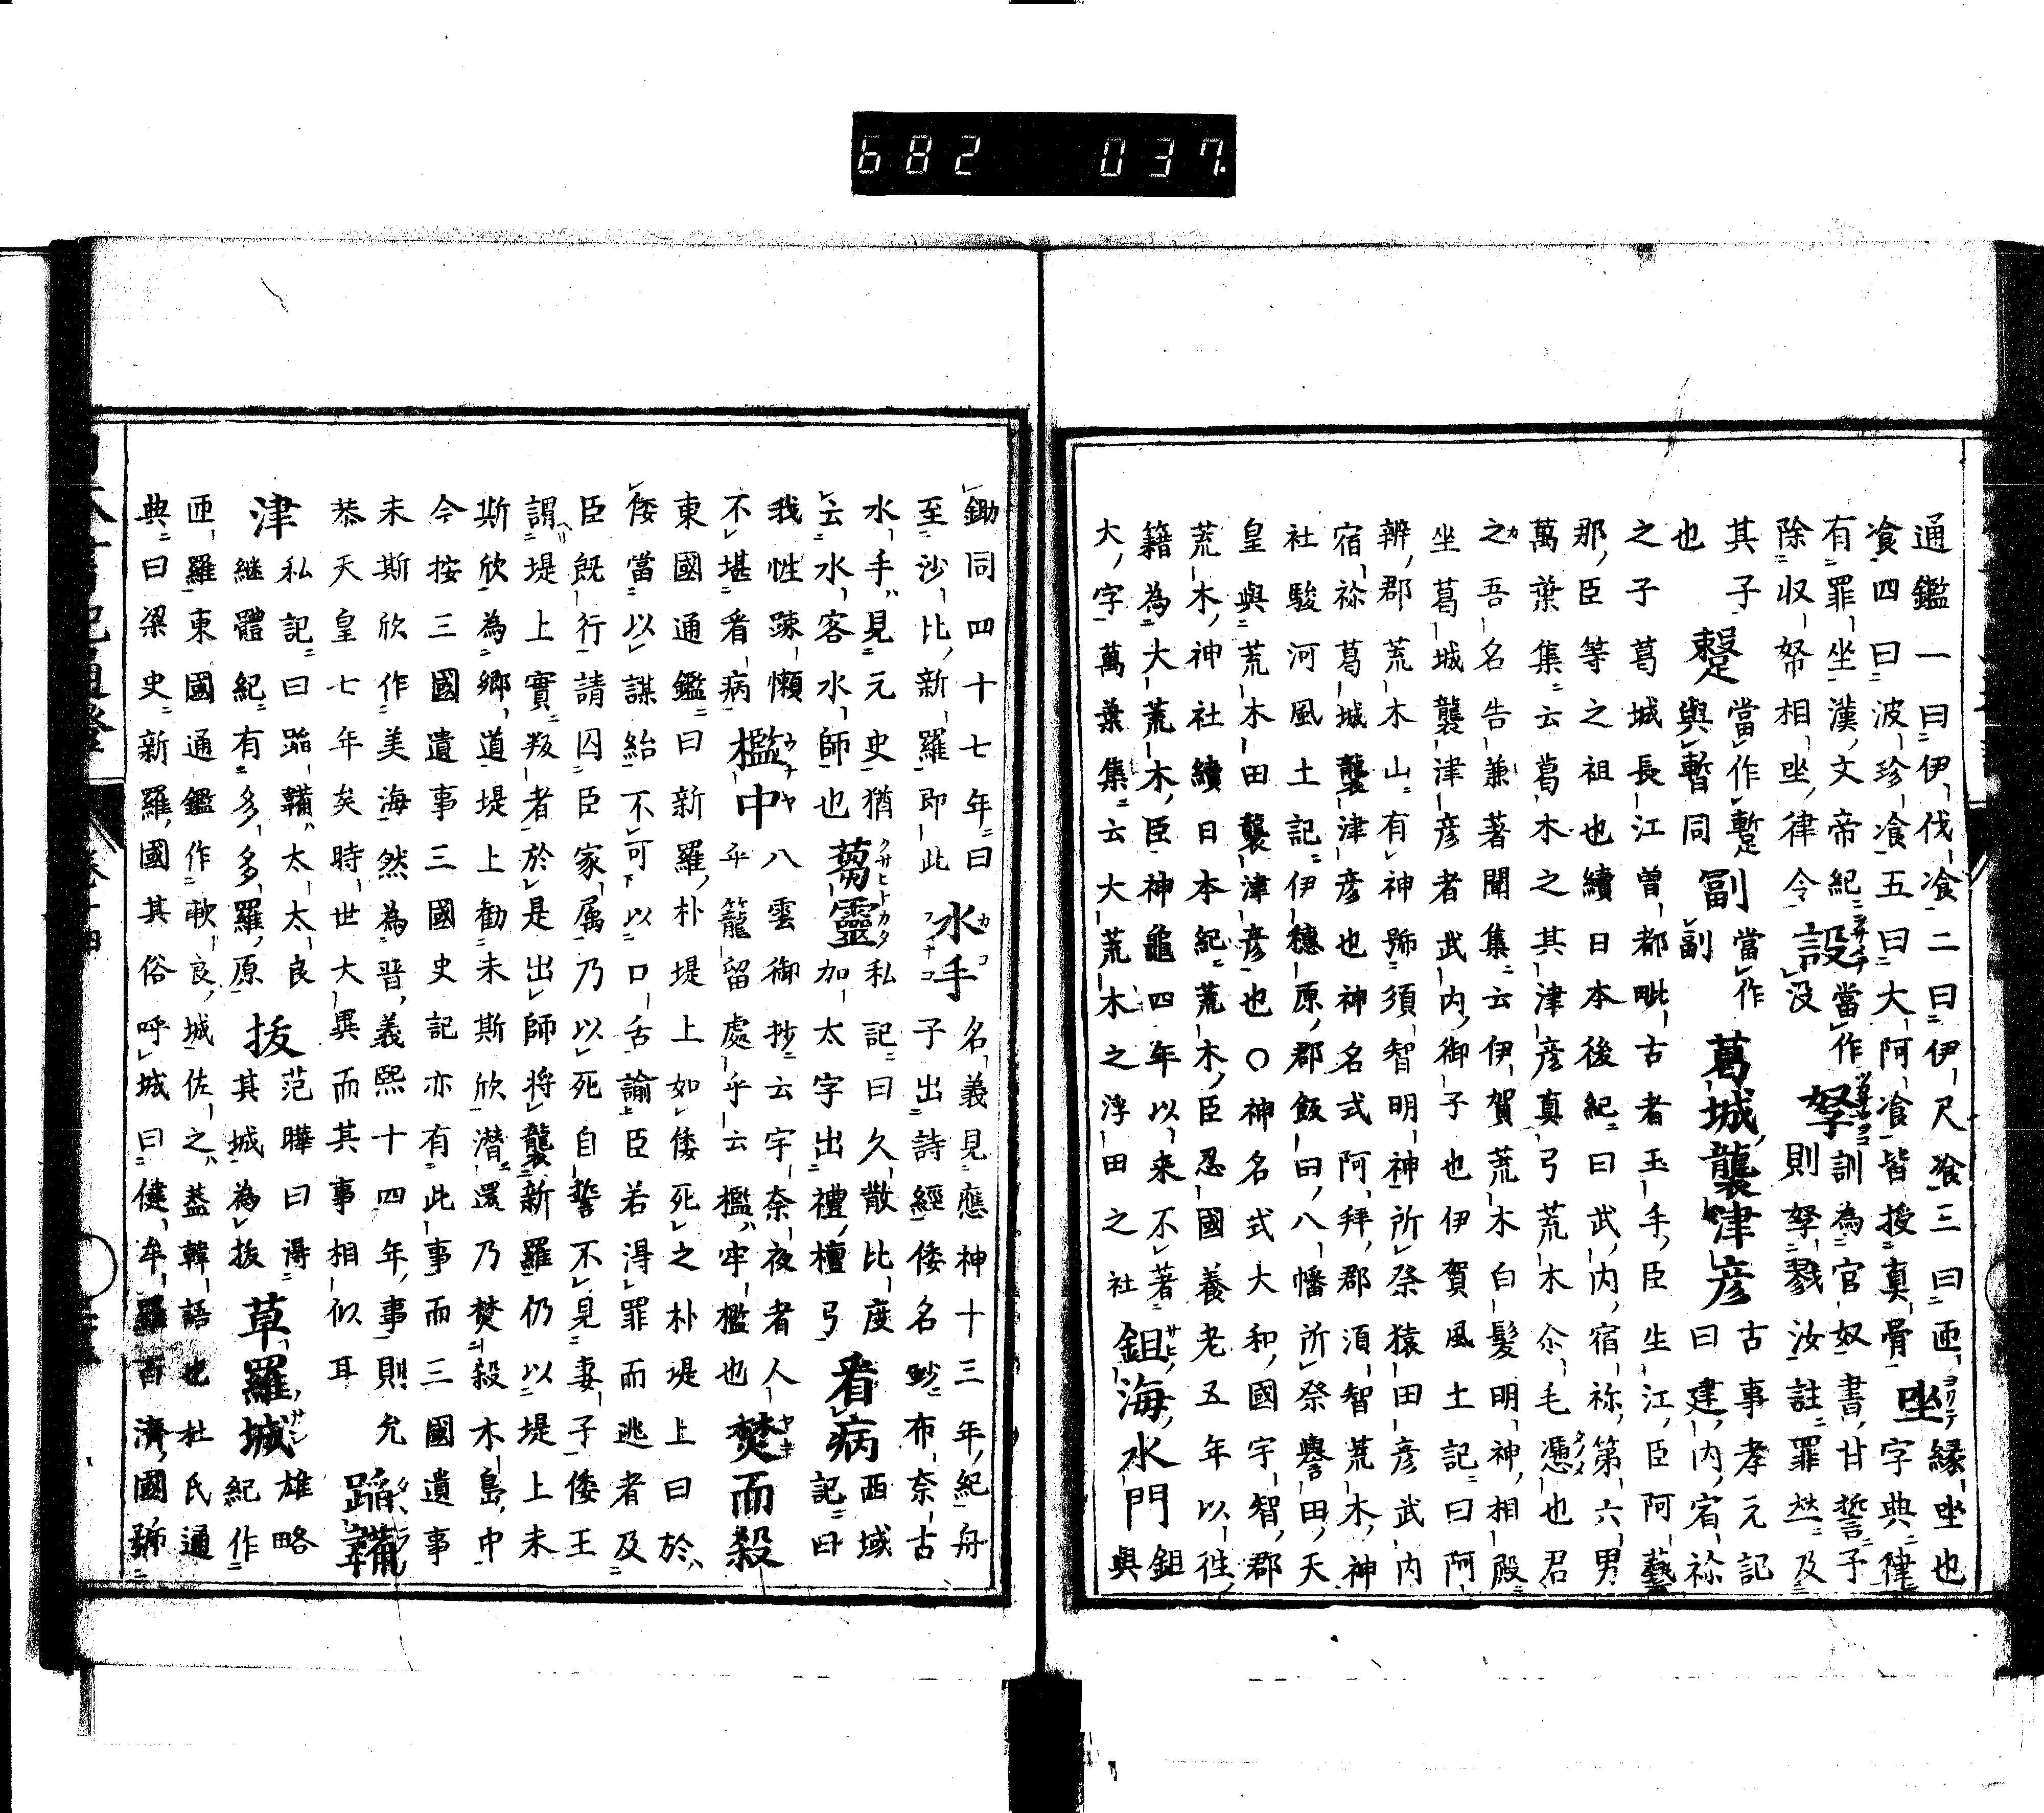 682 037
通鑑一曰伊伐飡二曰伊尺飡三曰迊坐縁坐也
飡四曰波珍飡五曰大阿飡皆授真骨坐字典律
有罪坐漢文帝紀設當作孥訓為官奴書甘誓予
除収帑相坐律令設没孥則孥戮汝註罪玆及
其子蹔當作蹔副當作葛城襲津彦古事孝元記
也與暫同副葛城襲津彦曰建内宿祢
之子葛城長江曽都毗古者玉手臣生江臣阿藝
那臣等之祖也續日本後紀曰武内宿祢第六男
萬葉集云葛木之其津彦真弓荒木尒毛憑也君
之吾名告兼著聞集云伊賀荒木白髮明神相殿
坐葛城襲津彦者武内御子也伊賀風土記曰阿
辨郡荒木山有神号須智明神所祭猿田彦武内
宿祢葛城襲津彦也神名式阿拜郡須智荒木神
社駿河風土記伊穗原郡飯田八幡所祭譽田天
皇與荒木田襲津彦也○神名式大和國宇智郡
荒木神社續日本紀荒木臣忍國養老五年以往
籍為大荒木臣神龜四年以来不著鉏海水門鉏
大字萬葉集云大荒木之浮田之社鉏海水門與
鋤同四十七年曰水手名義見應神十三年紀舟
至沙比新羅即此水手子出詩經倭名鈔布奈古
水手見元史猶蒭靈私記曰久散比度看病西域
云水客水師也蒭靈加太字出禮檀弓看病記曰
我性踈懶檻中八雲御抄云宇奈夜者人焚而殺
不堪看病檻中乎籠留處乎云檻牢檻也焚而殺
東國通鑑曰新羅朴堤上如倭死之朴堤上曰於
倭當以謀紿不可以口舌諭臣若得罪而逃者及
臣既行請囚臣家属乃以死自誓不見妻子倭王
謂堤上實叛者於是出師将襲新羅仍以堤上未
斯欣為鄉道堤上勧未斯欣潜還乃焚殺木島中
今按三國遺事三國史記亦有此事而三國遺事
未斯欣作美海然為晋義熙十四年事則允
恭天皇七年矣時世大異而其事相似耳蹈鞴
津私記曰蹈鞴太太良抜范曄曰得草羅城雄略
津継體紀有多多羅原抜其城為抜草羅城紀作
迊羅東國通鑑作歃良城佐之盖韓語也杜氏通
典曰梁史新羅國其俗呼城曰健牟羅百濟國号